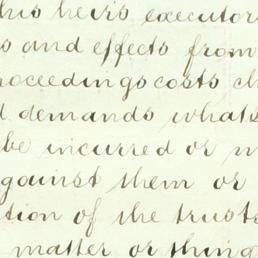 his heirs executor
s and effects from
roceedings costs ch
d demands whats
be incurred or m
against them or
tion of the trusts
matter or thing